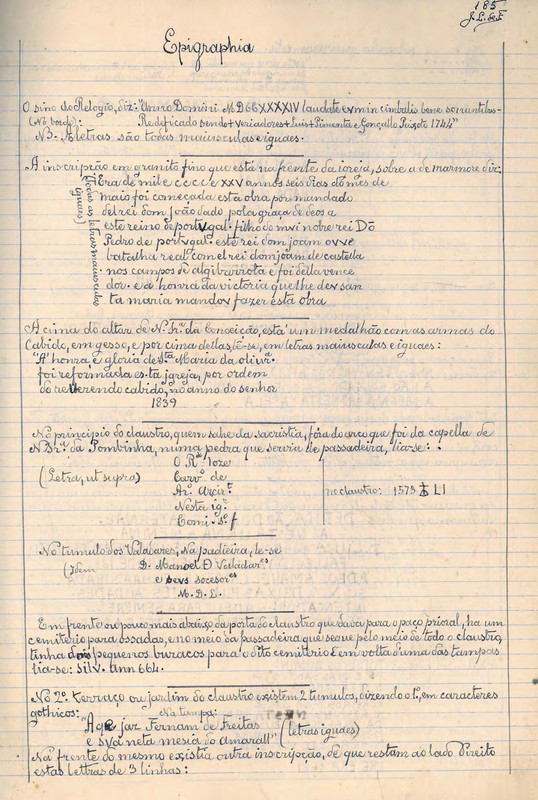 185
J. L. de F.
Epigraphia
O sino do Relogio, diz: "Anno Domini MDCCXXXXIV laudate eum in cimbalis bene sonantibus-
(No bordo): Rudificado sendo + veriadores + Luis + Pimenta e Gonçallo Peixoto 1744"
N.B. As letras são todas maiusculas e iguaes.
A inscripção em granito fino que está na frente da igreja, sobre a de marmore diz:
(Todas as letras maiusculas iguaes)
"Era de mil e cccc e XXV annos seis dias do mes de
maio foi começada esta obra por mandado
del rei dom joão dado pola graça de deos a
este reino de portugal: filho do mvi nobre rei Dõ
Pedro de portvgal: este rei dom joam ovve
batalha real com el rei dom joam de castella
nos campos de algibarrota e foi della vence
dor: e a honra da victoria que lhe dev san
ta maria mandov fazer esta obra
A cima do altar de N. Sr.ª da Conceição, está um medalhão com as armas do
Cabido, em gesso, e por cima dellas lê-se, em letras maiusculas e iguaes:
"A' honra e gloria de S.ta Maria da olivr.ª
foi reformada esta igreja, por ordem
do reverendo cabido, no anno do senhor
1839
No principio do claustro, quem sahe da sacristia, fóra do arco que foi da capella de
N. Sr.ª da Pombinha, numa pedra que servia de passadeira, lia-se:
(Letra, ut supra)
O R.do Joze
Carv.o de
Ar.o Arcir.e
Nesta ig.a
Comi. S.º f
no claustro: 1575 LI
No tumulo dos Valadares, na padieira, le-se
(Idem
D. Manoel D Valadar.es
e sevs socesor.es
M. D. L.
Em frente ou pouco mais abaixo da porta do claustro que dava para o paço prioral, ha um
cemiterio para ossadas, e no meio da passadeira que segue pelo meio de todo o claustro,
tinha dois pequenos buracos para o dito cemiterio e em volta d'uma das tampas
lia-se: Silv. ann 664.
No 2.º terraço ou jardim do claustro existem 2 tumulos, dizendo o 1.º, em caracteres
gothicos: Na tampa:
"Aqe jaz Fernam de Freitas
e sva neta mesia do amarall" (letras iguaes)
Na frente do mesmo existia outra inscripção, de que restam ao lado direito
estas lettras de 3 linhas: